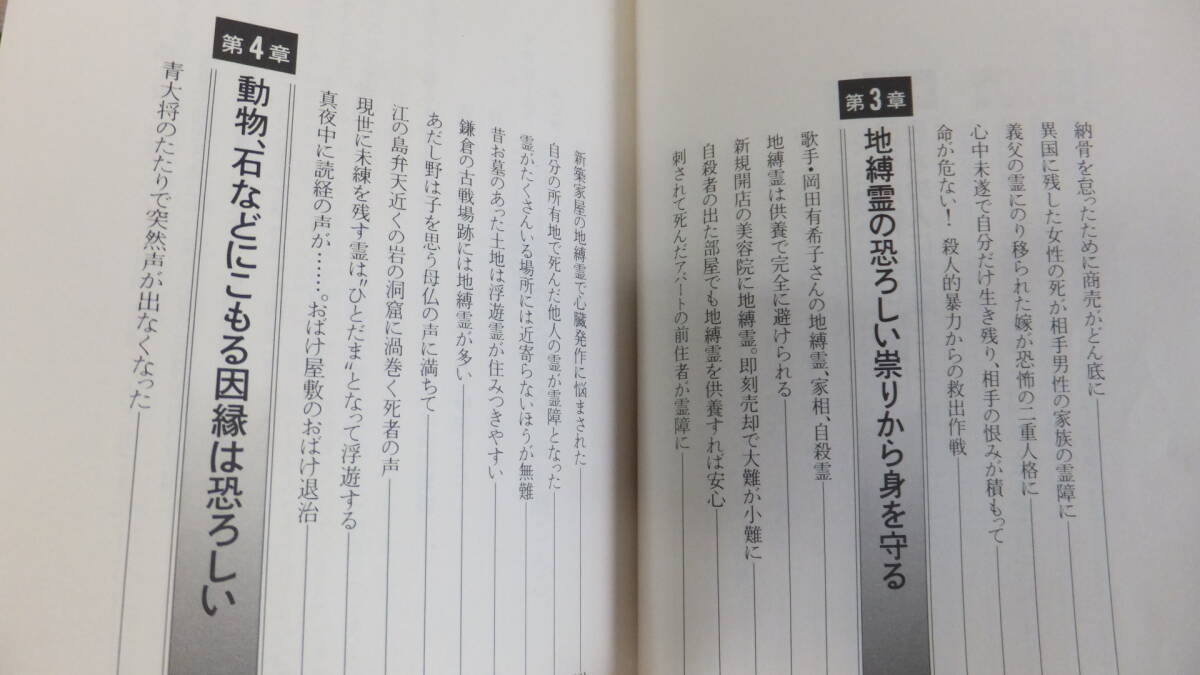 納骨を怠ったために商売がどん底に
異国に残した女性の死が相手男性の家族の霊障に
義父の霊にのり移られた嫁が恐怖の二重人格に
心中未遂で自分だけ生き残り、相手の恨みが積もって
命が危ない！ 殺人的暴力からの救出作戦
第3章
地縛霊の恐ろしい祟りから身を守る
歌手・岡田有希子さんの地縛霊、家相、自殺霊
地縛霊は供養で完全に避けられる
新規開店の美容院に地縛霊。即刻売却で大難が小難に
自殺者の出た部屋でも地縛霊を供養すれば安心
刺されて死んだアパートの前住者が霊障に
新築家屋の地縛霊で心臓発作に悩まされた
自分の所有地で死んだ他人の霊が霊障となった
霊がたくさんいる場所には近寄らないほうが無難
昔お墓のあった土地は浮遊霊が住みつきやすい
鎌倉の古戦場跡には地縛霊が多い
あだし野は子を思う母仏の声に満ちて
江の島弁天近くの岩の洞窟に渦巻く死者の声
現世に未練を残す霊は〝ひとだま〟となって浮遊する
真夜中に読経の声が……。おばけ屋敷のおばけ退治
第4章
動物、石などにこもる因縁は恐ろしい
青大将のたたりで突然声が出なくなった